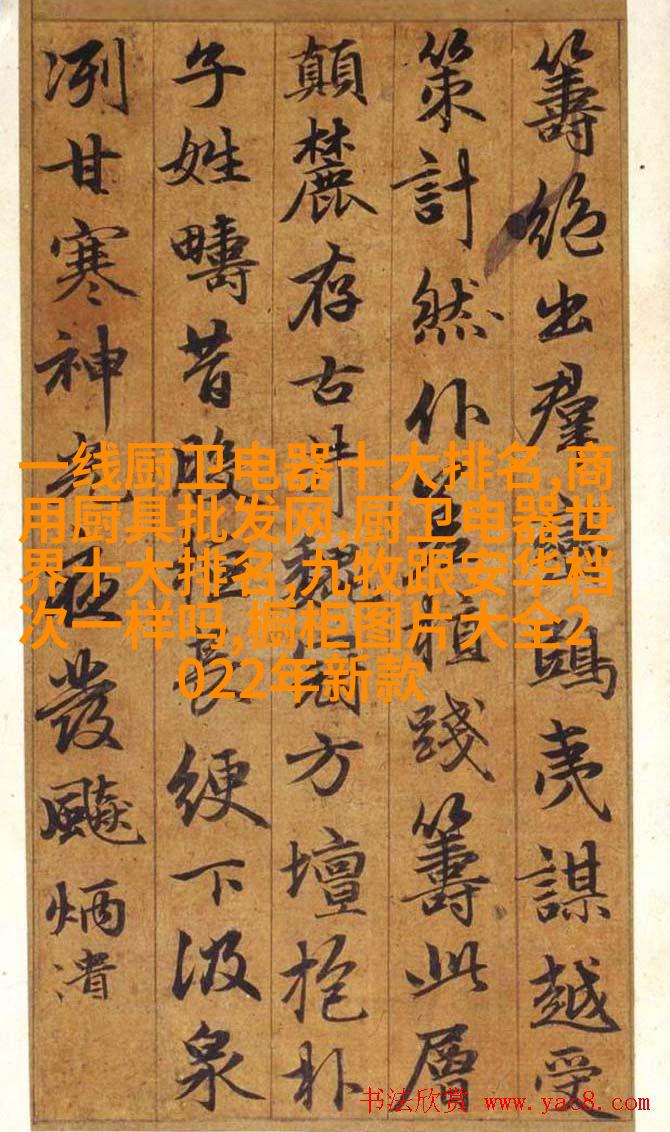 籌絶出群鴟夷謀越受
策計然仆踐籌此層
顛麓存古井魏方壇抱朴
子姓疇昔長綆下汲泉
冽甘寒神發颸炳漬
一线厨卫电器十大排名,商
用厨具批发网,厨卫电器世
界十大排名,九牧跟安华档
次一样吗,橱柜图片大全2
022年新款
书法欣赏 www.yac8.com